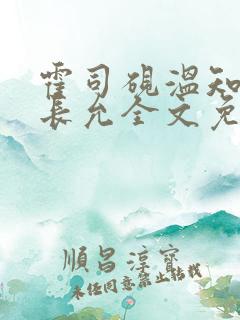 霍司砚温知
长允全文免
順昌淳寶
未经同意禁止转载